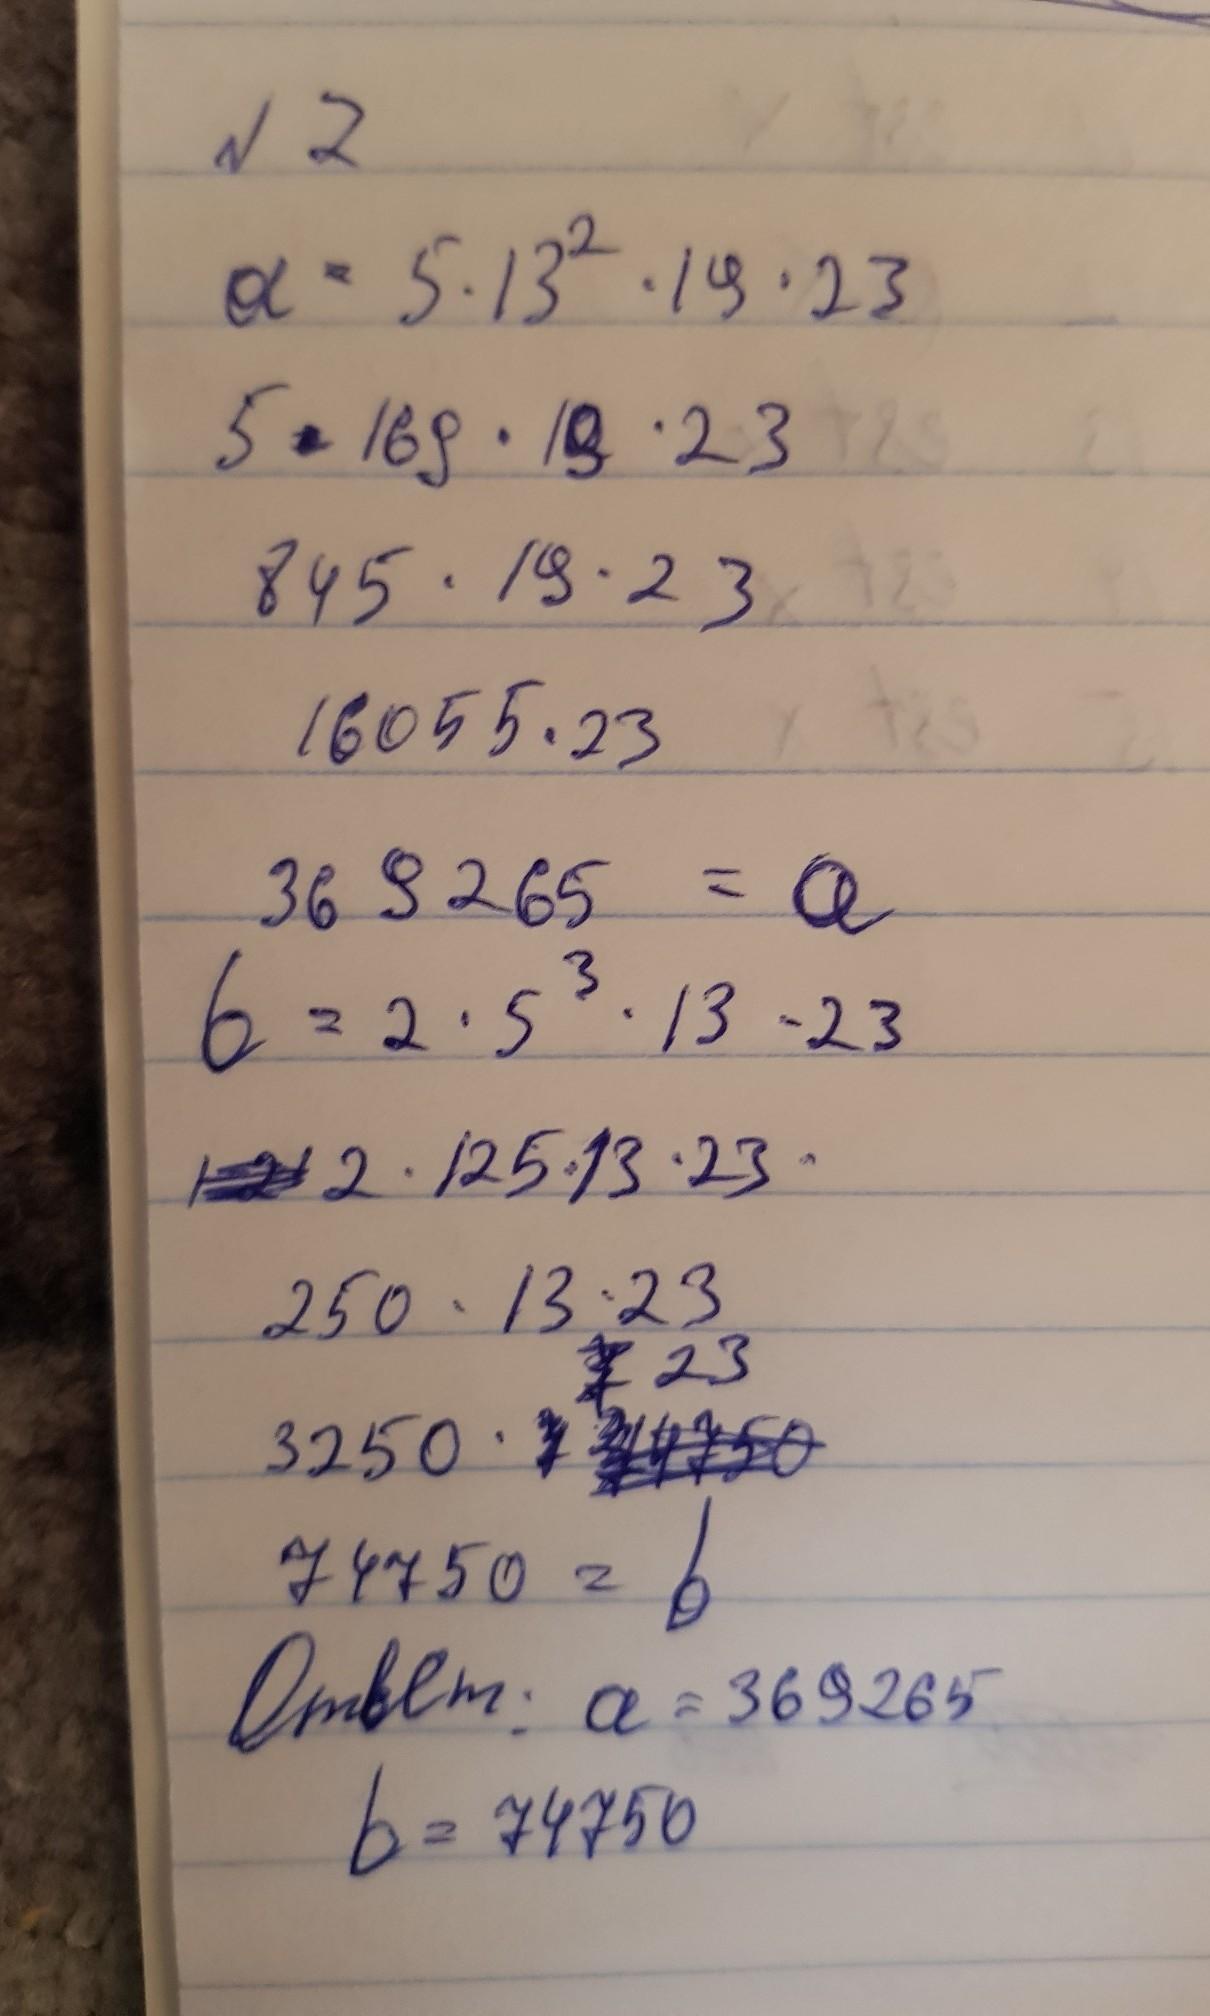 № 2
a = 5 · 13² · 19 · 23
5 · 169 · 19 · 23
845 · 19 · 23
16055 · 23
369265 = a
b = 2 · 5³ · 13 · 23
2 · 125 · 13 · 23 ·
250 · 13 · 23
23
3250 ·
74750 = b
Ответ: a = 369265
b = 74750